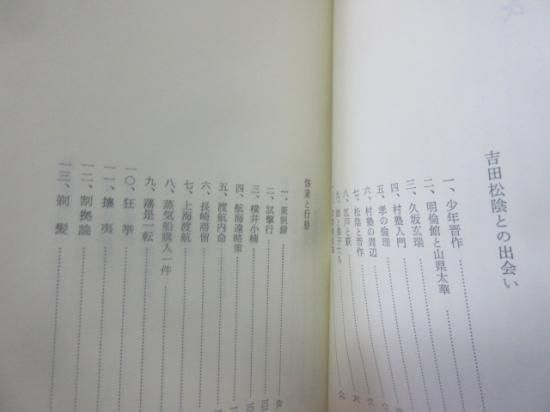 吉田松陰との出会い
一、少年晋作
二、明倫館と山県太華
三、久坂玄瑞
四、村塾入門
五、孝の倫理
六、村塾の周辺
七、松陰と晋作
八、江戸と萩
一、東帆録
二、試撃行
三、横井小楠
四、航海遠略策
五、渡航内命
六、長崎滞留
七、上海渡航
八、蒸気船購入一件
九、藩是一転
一〇、狂挙
一一、攘夷
一二、割拠論
一三、剃髪